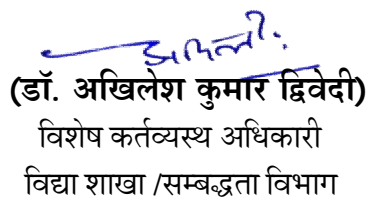 (डॉ. अखिलेश कुमार द्विवेदी)
विशेष कर्तव्यस्थ अधिकारी
विद्या शाखा /सम्बद्धता विभाग